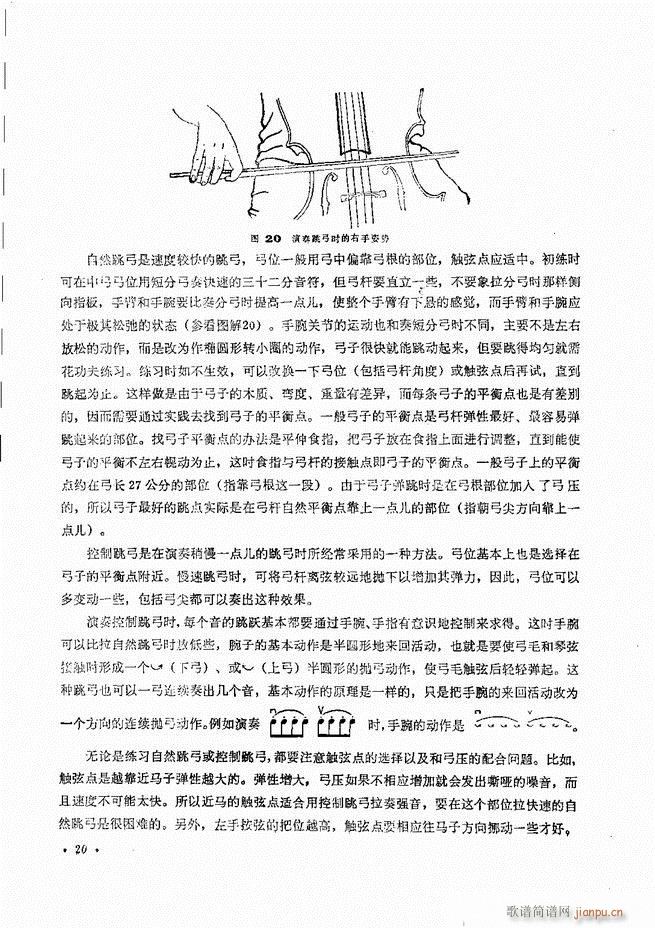 图 20 演奏跳弓时的右手姿势
自然跳弓是速度较快的跳弓，弓位一般用弓中偏靠弓根的部位，触弦点应适中。初练时
可在中弓弓位用短分弓奏快速的三十二分音符，但弓杆要直立一些，不要象拉分弓时那样侧
向指板，手臂和手腕要比奏分弓时提高一点儿，使整个手臂有下悬的感觉，而手臂和手腕应
处于极其松弛的状态（参看图解20）。手腕关节的运动也和奏短分弓时不同，主要不是左右
放松的动作，而是改为作椭圆形转小圈的动作，弓子很快就能跳动起来，但要跳得均匀就需
花功夫练习。练习时如不生效，可以改换一下弓位（包括弓杆角度）或触弦点后再试，直到
跳起为止。这样做是由于弓子的木质、弯度、重量有差异，而每条弓子的平衡点也是有差别
的，因而需要通过实践去找到弓子的平衡点。一般弓子的平衡点是弓杆弹性最好、最容易弹
跳起来的部位。找弓子平衡点的办法是平伸食指，把弓子放在食指上面进行调整，直到能使
弓子的平衡不左右幌动为止，这时食指与弓杆的接触点即弓子的平衡点。一般弓子上的平衡
点约在弓长27公分的部位（指靠弓根这一段）。由于弓子弹跳时是在弓根部位加入了弓压
的，所以弓子最好的跳点实际是在弓杆自然平衡点靠上一点儿的部位（指朝弓尖方向靠上一
点儿）。
控制跳弓是在演奏稍慢一点儿的跳弓时所经常采用的一种方法。弓位基本上也是选择在
弓子的平衡点附近。慢速跳弓时，可将弓杆离弦较远地抛下以增加其弹力，因此，弓位可以
多变动一些，包括弓尖都可以奏出这种效果。
演奏控制跳弓时，每个音的跳跃基本都要通过手腕、手指有意识地控制来求得。这时手腕
可以比拉自然跳弓时放低些，腕子的基本动作是半圆形地来回活动，也就是要使弓毛和琴弦
接触时形成一个（下弓）、或（上弓）半圆形的抛弓动作，使弓毛触弦后轻轻弹起。这
种跳弓也可以一弓连续奏出几个音，基本动作的原理是一样的，只是把手腕的来回活动改为
一个方向的连续抛弓动作。例如演奏 时，手腕的动作是 。
无论是练习自然跳弓或控制跳弓，都要注意触弦点的选择以及和弓压的配合问题。比如，
触弦点是越靠近马子弹性越大的。弹性增大，弓压如果不相应增加就会发出嘶哑的噪音，而
且速度不可能太快。所以近马的触弦点适合用控制跳弓拉奏强音，要在这个部位拉快速的自
然跳弓是很困难的。另外，左手按弦的把位越高，触弦点要相应往马子方向挪动一些才好。
• 20 •
歌谱简谱网 jianpu.cn